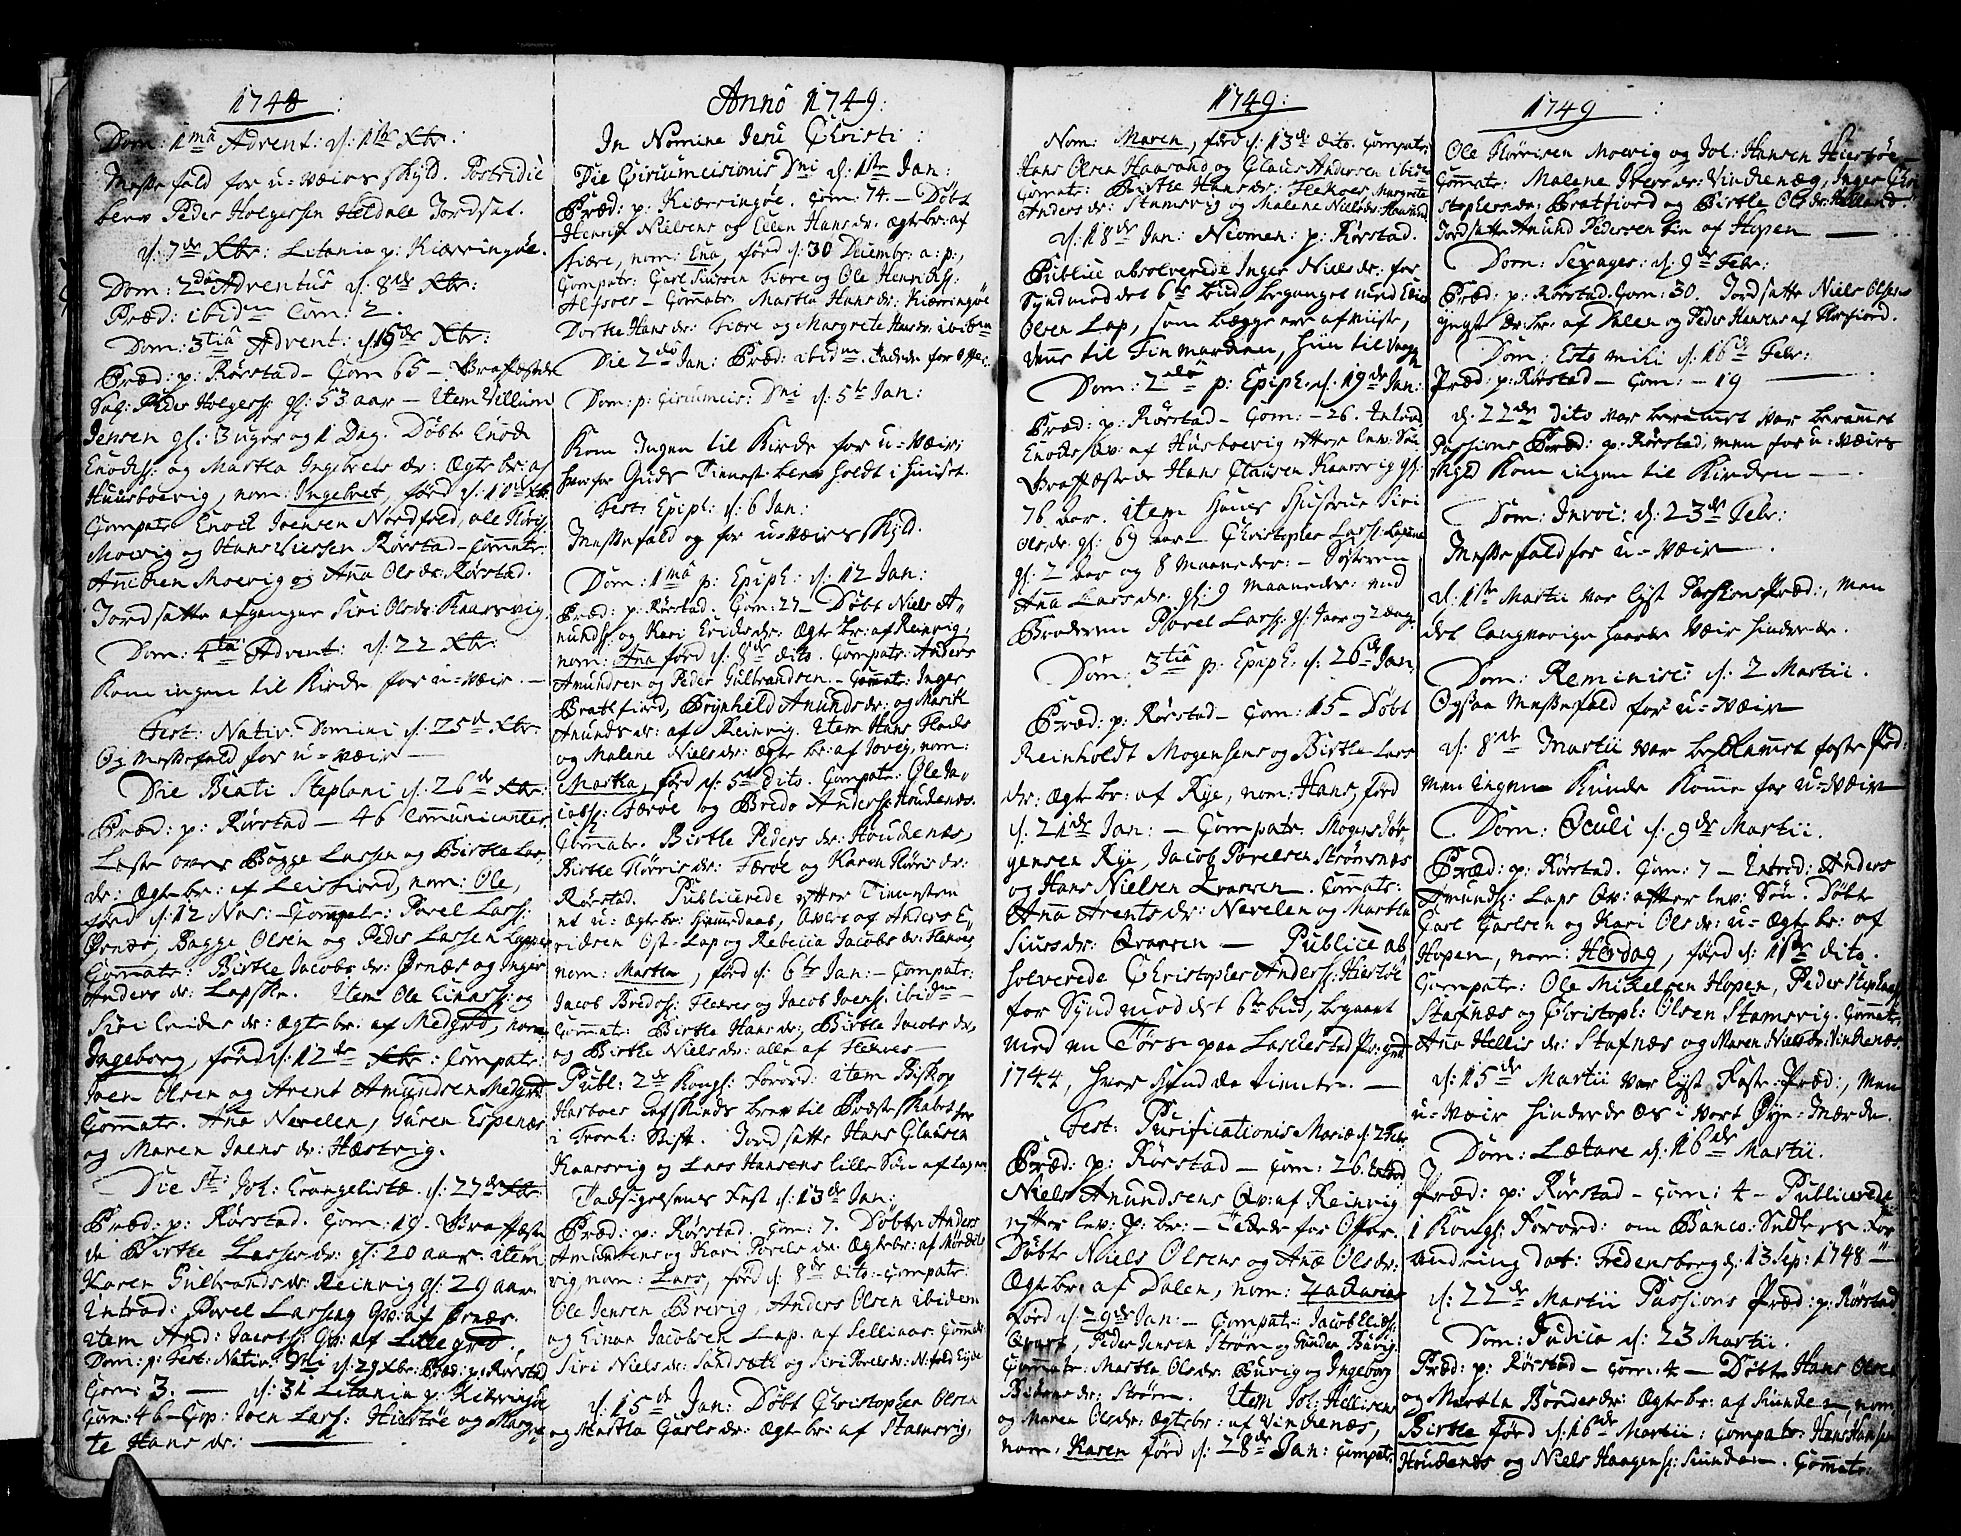 1748
Dom: 1ma Advent: d: 1ste Xbr:
Messefald for u-væirs skyld. Postridie
blev Peder Holgersen Heldale Jordsat.
d: 7de Xbr: Litania p: Kiærringøe.
Dom: 2da Adventus d: 8de Xbr:
Præd: ibidm Com: 2.
Dom: 3tia Advent: d: 15de Xbr:
Præd: p: Rørstad - Com 65 - Graffæstede
Sal: Peder Holgers: gl: 53 aar - Item Villum
Jensen gl: 3 uger og 1 Dag. Døbte Enoch
Enochs: og Martha Ingebrets dr: Ægte br: af
Huusboevig, nom: Ingebret, førd d: 10de Xbr
Compatr: Enoch Joensen Nordfold, Ole Flöris:
Moevig og Hans Siersen Rørstad - Commatr:
Anichen Moevig og Ana Olsdr: Rørstad.
Jordsatte afgangne Siri Olsdr: Kaarsvig.
Dom: 4ta Advent: d: 22 Xbr:
Kom ingen til Kirche for u-væir. -
Fest: Nativ: Domini d: 25de Xbr:
Og Messefald for u-væir -
Die Beati Stephani d: 26de Xbr:
Præd: p: Rörstad - 46 Communicanter.
Læste over Bagge Larsen og Birthe Lars
dr: Ægte br: af Leirfiord, nom: Ole,
førd d: 12 Nov: - Compatr: Povel Lars:
Ørnæs, Bagge Olsen og Peder Larsen Lappe
Commatr: Birthe Jacobs dr: Ørnæs og Inger
Anders dr: Lapske. Item Ole Einers: og
Siri dr: Ægte br: af Medgrd, nom:
Ingeborg, førd d: 12de Xbr: Compatr:
Joen Olsen og Arent Amundsen Medgrd
Commatr: Ana Nevelen, Guren Espenæs
og Maren Joens dr: Hæstvig.
Die St: Joh: Evangelistæ d: 27de Xbr
Præd: p: Rørstad. Com: 19. Graffæste
de Birthe Larsdr: gl: 20 aar. Item
Karen Gulbrandsdr: Reinvig gl: 29 aar
Introd: Povel Larsens Qv: af Ørnæs.
Item And: Jacobs: Qv: af Lillegrd.
Dom: p: Fest: Nativ: Dni d: 29 Xbr: Præd: p: Rörstad
Com: 3. - d: 31 Litania p: Kiærringøe
Com: 46 - Cop: Joen Lars: Hiertöe og Margre
te Hans dr:
Anno 1749:
In Nomine Jesu Christi:
Die Circumcisionis Dni d: 1ste Jan:
Præd: p: Kiærringöe. Com: 74. - Døbt
Henrich Nielsens af Ellen Hansdr: Ægte br: af
Fiære, nom: Ena, førd d: 30 Decembr: a: p:,
Compatr: Carl Siursen Fiære og Ole Henrichs:
- Commatr: Martha Hansdr: Kiærringøe
Dorthe Hansdr: Fiære og Margrete Hansdr: ibidm
Die 2do Jan: Præd: ibidm. Tackede for Offer.
Dom: p: Circumcis: Dni d: 5te Jan:
Kom Ingen til Kirche for u-væir,
hvorfor Guds Tieneste blev holdt i Huuset.
Fest: Epiph: d: 6 Jan:
Messefald og for u-væirs skyld.
Dom: 1ma p: Epiph: d: 12 Jan:
Præd: p: Rörstad. Com: 27 - Döbt Niels A-
nunds: og Kari Erichsdr: Ægte br: af Reinvig,
nom: Ana førd d: 8de dito. Compatr: Anders
Amundsen og Peder Gulbrandsen. - Commat: Inger
Brathfiord, Brynhild Anundsdr: og Marith
Anundsdr: af Reinvig. Item Hans
og Malene Nielsdr: Ægte br: af Jovig, nom:
Martha, førd d: 5te dito. Compatr: Ole Ja-
cobs: Færöe og Bredo Anders: Houchenæs.
Commatr: Birthe Peders dr: Houchenes,
Birthe Flöris dr: Færöe og Karen Flöris dr:
Rørstad. Publicerede efter Tienesten
et u-ægte br: Hiemedaab, Avlet af Anders E-
richsen Øst-Lap og Rebecca Jacobs dr:
nom: Martha, førd d: 6te Jan: - Compatr:
Jacob Bredos: og Jacob Joens: ibidm -
Commat: Birthe Hans dr:, Birthe Jacobs dr,
og Birthe Niels dr: alle af
Publ: 2de Kongl: Forord: item Biskop
Harboes Afskeeds brev til Præsteskabet
i Tronh: Stift. Jordsatte Hans Clausen
Kaarsvig og Lars Hansens lille Sön af
Tacksigelsens Fest d: 13de Jan:
Præd: p: Rørstad. Com: 7. Döbte Anders
Amundsens og Kari Povels dr: Ægte br: af
vig, nom: Lars, førd d: 8de dito: - Compatr:
Ole Jensen Brevig, Anders Olsen ibidem
og Einar Jacobsen Lap. af Sellinas. Commatr:
Siri Nielsdr: Sandsæth og Siri Povelsdr: N: fold Eyde
d: 15de Jan: Döbt Christopher Olsen
og Martha Carlsdr: Ægte br: af Stamsvig,
1749:
Nom: Maren, förd d: 13de dito. Compatr:
Hans Olsen Haarand og Claus Andersen ibid.
Commatr: Birthe Hansdr: Margrete
Andersdr: Stamsvig og Malene Nielsdr:
d: 18de Jan: Neomen: p: Rörstad.
Publice absolverede Inger Nielsdr: for
Synd mod det 6te bud, beganget med Elias
Olsen Lap, som begge ere afviiste,
hans til Finmarcken, hun til
Dom: 2do p: Epiph: d: 19de Jan:
Præd: p: Rörstad - Com: - 26. Introd:
Enochs qv: af Huusboevig efter lev: Sön
Graffæstede Hans Clausen Kaarsvig gl:
76 aar. Item Hans Hustrue Siri
Olsdr: gl: 69 aar - Christopher Lars:
gl: 2 aar og 8 Maaneder: - Söstren
Ana Larsdr: gl: 9 Maaneder: med
Broderen Povel Lars: gl: 1 aar og 2 dage
Dom: 3tia p: Epiph: d: 26de Jan:
Præd: p: Rörstad - Com: 15 - Döbt
Reinholdt Mogensens og Birthe Lars
dr: Ægte br: af Rye, nom: Hans, förd
d: 21de Jan: - Compatr: Mogens Jör-
gensen Rye, Jacob Povelsen Strömsnæs
og Hans Nielsen Qvarven. Commatr:
Ana Arentsdr: Nevelen og Martha
Siursdr: Qvarven - Publice ab
solverede Christopher Anders: Hiertöe
for Synd mod det 6te bud, begaaet
med en Tös paa
1744, hvor hand da tiente. -
Fest: Purificationis Mariæ d: 2 Febr
Præd: p: Rörstad - Com: 26. Introd:
Niels Anundsens Qv: af Reinvig
efter lev: P: br: - Tackede for Offer.
Döbte Niels Olsens og Ane Olsdr:
Ægte br: af Dalen, nom: Zacharias
förd d: 29de Jan: - Compatr: Jacob
Peder Jensen Ström og Gunder Bavig
Commatr: Martha Olsdr: Burig og Ingeborg
dr: Ström. Item Joh: Hellisens
og Maren Olsdr: Ægte br: af Vinchenæs,
nom: Karen förd d: 28de Jan: Compatr:
1749
Ole Flörisen Moevig og Joh: Hansen Hiertöe
Commatr: Malene Iversdr: Vinchenæs, Inger Chri
stophersdr: Bratfiord og Birthe Olsdr: Helland.
Jordsatte Anund Pedersen Lin af Hopen -
Dom: Sexages: d: 9de Febr:
Præd: p: Rörstad. Com: 30. Jordsatte Niels Olsens
yngste br: af Dalen og Peder Hansens af
Dom: Esto mihi d: 16de Febr:
Præd: p: Rörstad - Com: - 19
d: 22de dito var berammet var berammet
Passions Præd: p: Rörstad, men for u-væirs
skyld Kom ingen til Kirchen -
Dom: Invoc: d: 23de Febr:
Messefald for u-væir -
d: 1ste Martii var lyst Passions Præd:, men
det langvarige haarde Væir hindrede.
Dom: Reminisc: d: 2 Martii.
Ogsaa Messefald for u-væir
d: 8de Martii var berammet faste Præd:
men Ingen kunde komme for u-væir
Dom: Oculi d: 9de Martii.
Præd: p: Rörstad. Com: 7 - Introd: Anders
Amunds: Laps Qv: efter lev: Sön. Döbt
Carl Carlsen og Kari Olsdr: u-ægte br: af
Hopen, nom: Hordag, förd d: 1ste dito.
Compatr: Ole Mikelsen Hopen, Peder Stephens:
Stafnæs og Christoph: Olsen Stamsvig. Commatr:
Ana Hellis dr: Stafnæs og Maren Nielsdr: Vinchenæs.
d: 15de Martii var lyst Faste-Præd:, men
u-væir hindrede os i vort Øye-Mærcke.
Dom: Lætare d: 16de Martii.
Præd: p: Rörstad - Com: 4 - Publicerede
1 Kongl: Forord: om Banco-Sedlers For
andring dat: Fredensborg d: 13 Sep: 1748
d: 22de Martii Passions Præd: p: Rörstad
Dom: Judica d: 23 Martii.
Præd: p: Rörstad - Com: 4 - Döbte Hans Olsen
og Martha Bendersdr: Ægte br: af, nom:
Birthe förd d: 16de Martii: Compatr: Hans Hansen
Houchenes og Niels Haagens: Commatr: